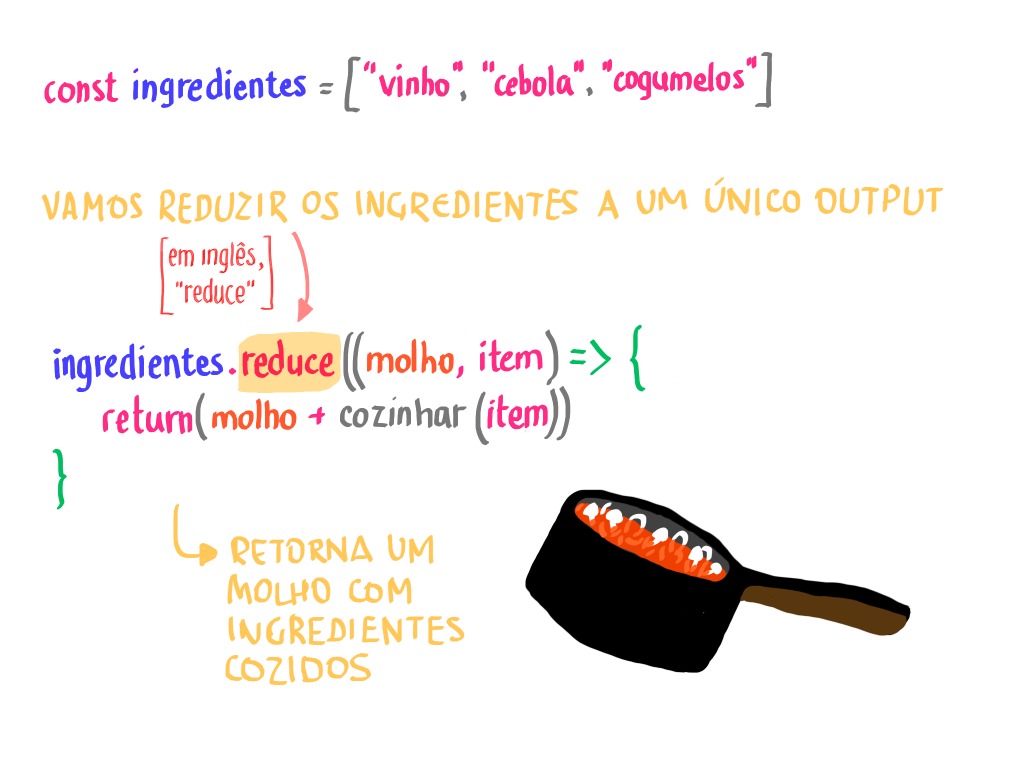 const ingredientes = ["vinho", "cebola", "cogumelos"]
VAMOS REDUZIR OS INGREDIENTES A UM ÚNICO OUTPUT
[em inglês,
"reduce"]
ingredientes.reduce((molho, item) => {
return(molho + cozinhar (item))
}
RETORNA UM
MOLHO COM
INGREDIENTES
COZIDOS